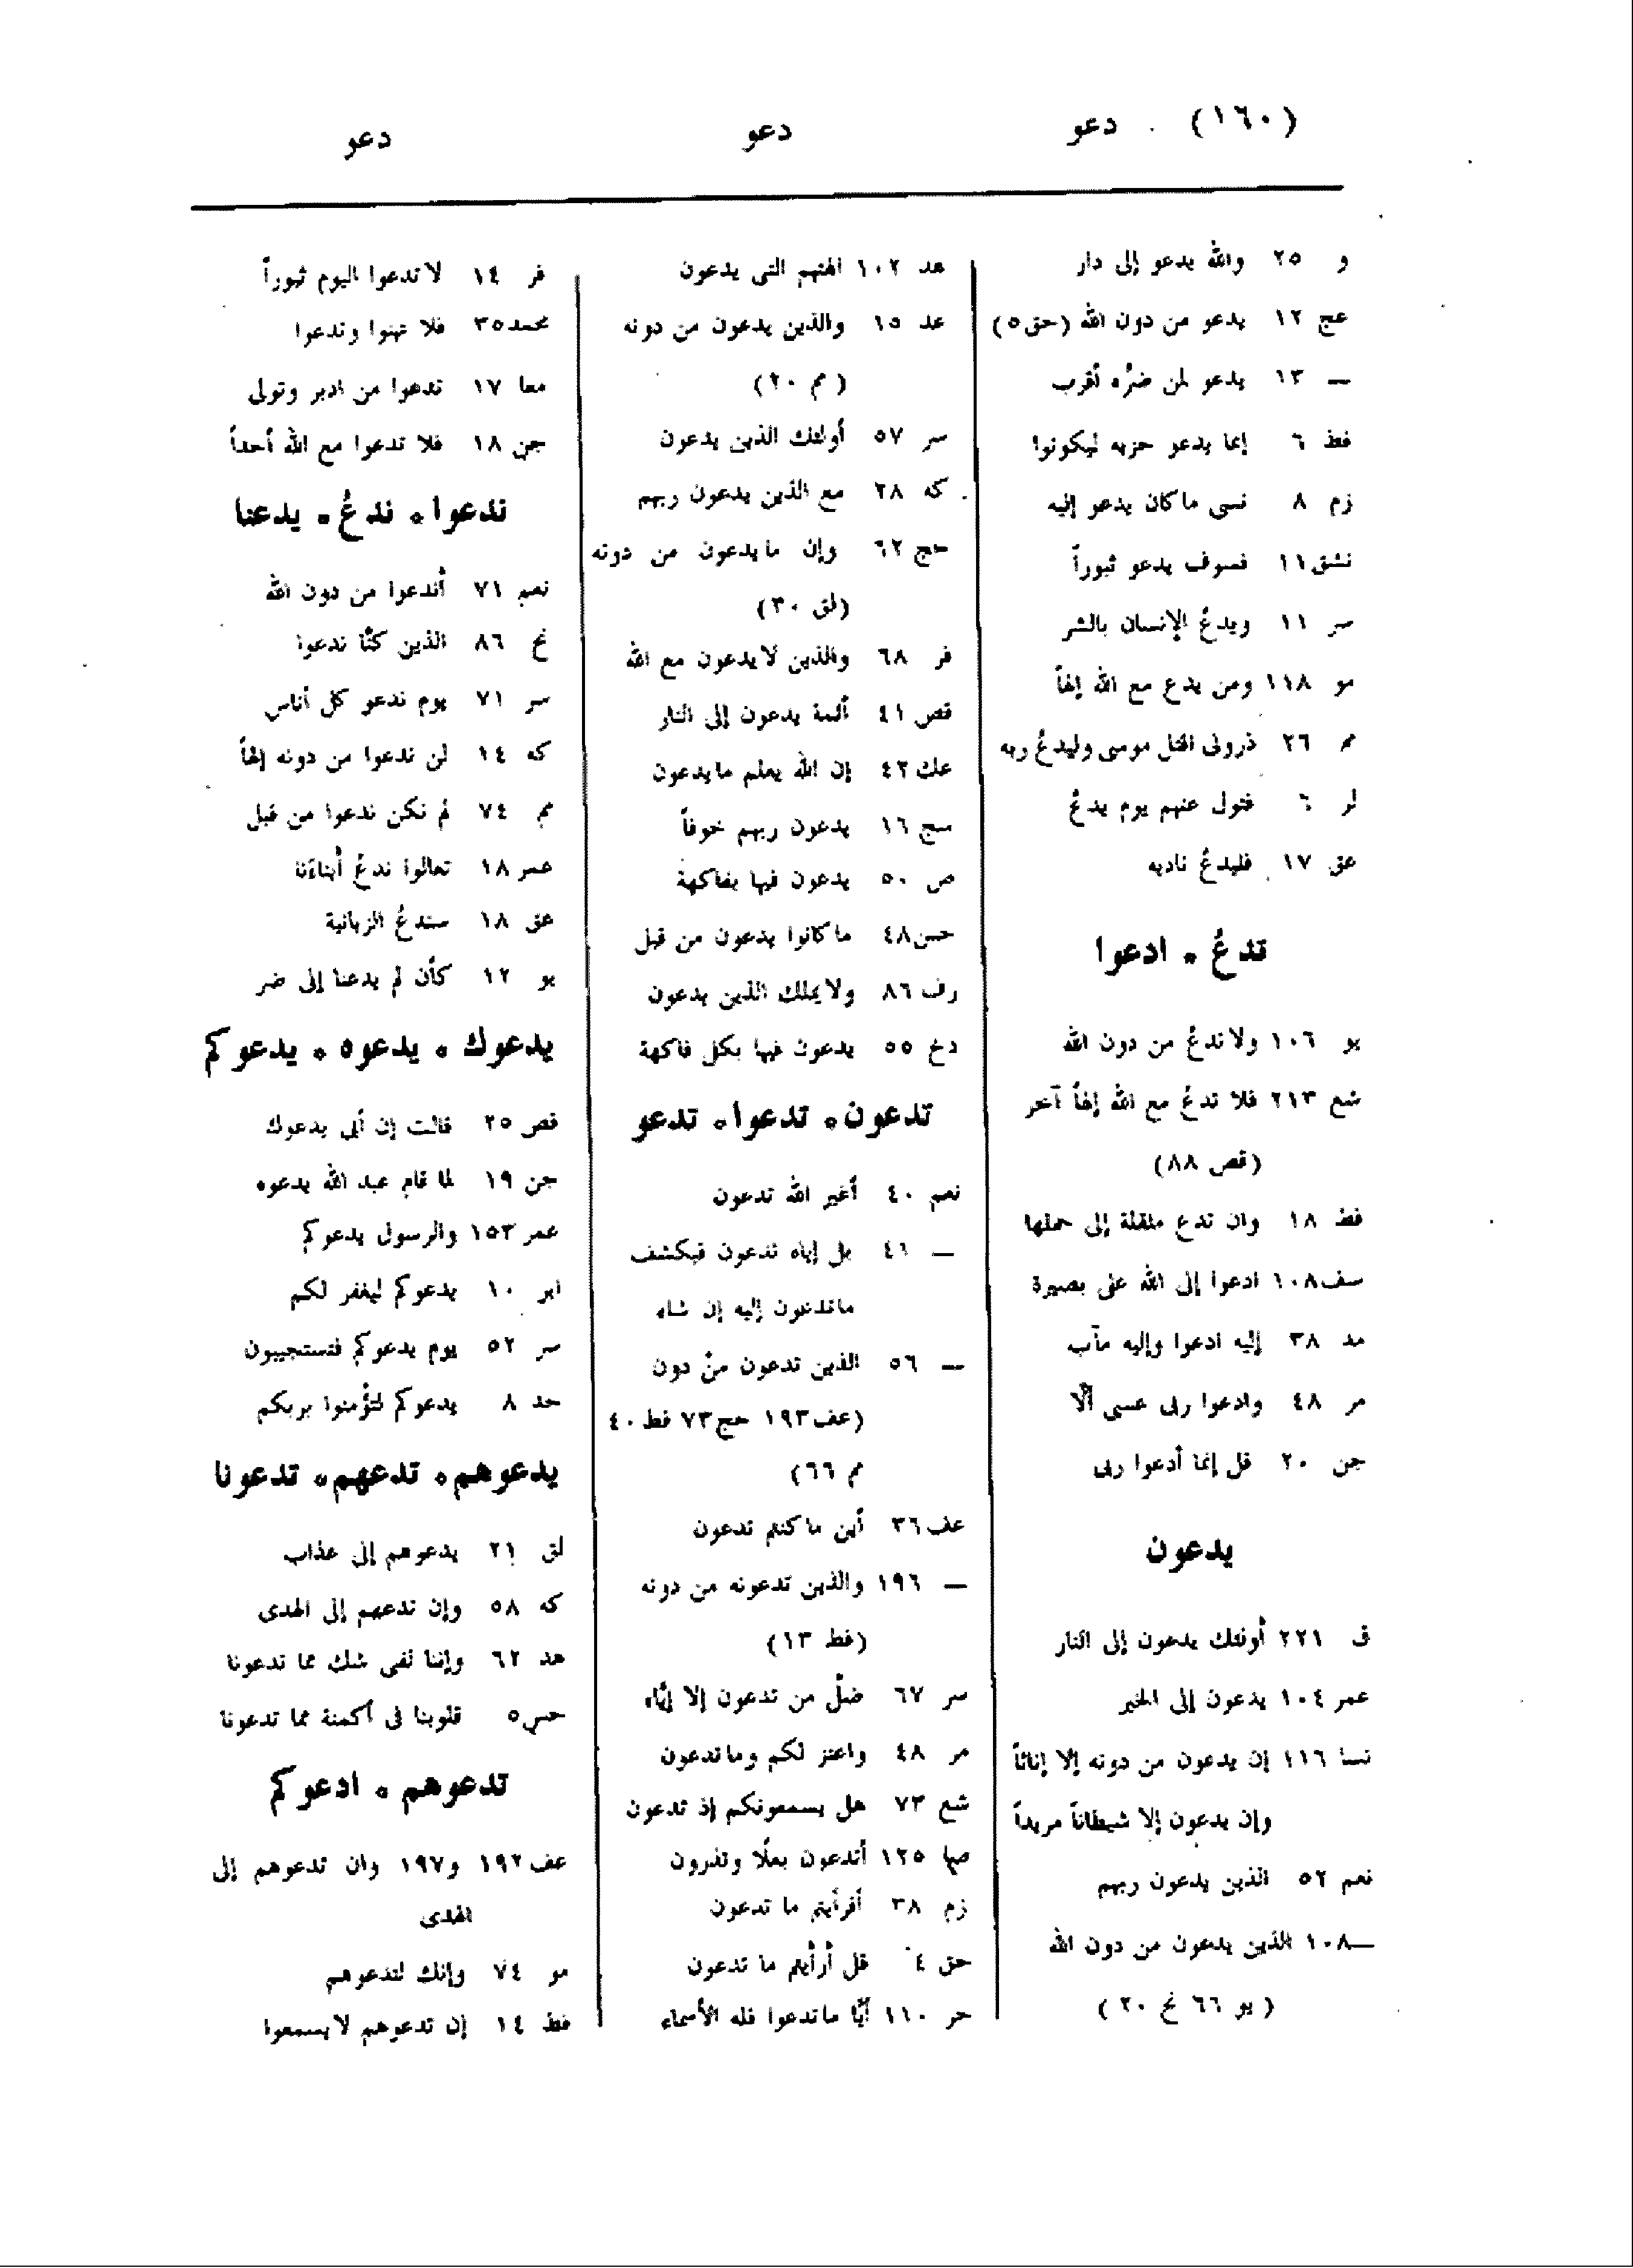 (١٦٠) دعو
دعو
دعو
و ٢٥ والله يدعو إلى دار
عج ١٢ يدعو من دون الله (حق ٥)
— ١٣ يدعو لمن ضرُّه أقرب
فط ٦ إنما يدعو حزبه ليكونوا
زم ٨ نسى ما كان يدعو إليه
نشق ١١ فسوف يدعو ثبوراً
سر ١١ ويدعُ الإنسان بالشر
مو ١١٨ ومن يدع مع الله إلهاً
مم ٢٦ ذرونى اقتل موسى وليدعُ ربه
لر ٦ فتول عنهم يوم يدعُ
عق ١٧ فليدعُ ناديه
تدعُ ٥ ادعوا
يو ١٠٦ ولا تدعُ من دون الله
شع ٢١٣ فلا تدعُ مع الله إلهاً آخر
(قص ٨٨)
فط ١٨ وان تدع مثقلة إلى حملها
سف ١٠٨ ادعوا إلى الله على بصيرة
مد ٣٨ إليه ادعوا وإليه مآب
مر ٤٨ وادعوا ربى عسى ألّا
جن ٢٠ قل إنما أدعوا ربى
يدعون
ق ٢٢١ أولئك يدعون إلى النار
عمر ١٠٤ يدعون إلى الخير
نسا ١١٦ إن يدعون من دونه إلا إناثاً
وإن يدعون إلا شيطاناً مريداً
نعم ٥٢ الذين يدعون ربهم
— ١٠٨ الذين يدعون من دون الله
(يو ٦٦ نح ٢٠)
هد ١٠٢ الهتهم التى يدعون
عد ١٥ والذين يدعون من دونه
(مم ٢٠)
سر ٥٧ أولئك الذين يدعون
كه ٢٨ مع الذين يدعون ربهم
حج ٦٢ وإن ما يدعون من دونه
(لق ٣٠)
فر ٦٨ والذين لا يدعون مع الله
قص ٤١ أئمة يدعون إلى النار
عك ٤٢ إن الله يعلم ما يدعون
سج ١٦ يدعون ربهم خوفاً
ص ٥٠ يدعون فيها بفاكهة
حس ٤٨ ما كانوا يدعون من قبل
رف ٨٦ ولا يملك الذين يدعون
دخ ٥٥ يدعون فيها بكل فاكهة
تدعون ٥ تدعوا ٥ تدعو
نعم ٤٠ أغير الله تدعون
— ٤١ بل إياه تدعون فيكشف
ما تدعون إليه إن شاء
— ٥٦ الذين تدعون منْ دون
(عف ١٩٣ حج ٧٣ فط ٤٠
مم ٦٦)
عف ٣٦ أين ما كنتم تدعون
— ١٩٦ والذين تدعونه من دونه
(فط ١٣)
سر ٦٧ ضلّ من تدعون إلا إيّاه
مر ٤٨ واعتز لكم وما تدعون
شع ٧٣ هل يسمعونكم إذ تدعون
صا ١٢٥ أتدعون بعلًا وتذرون
زم ٣٨ أفرأيتم ما تدعون
حق ٤ قل أرأيتم ما تدعون
سر ١١٠ أيّا ما تدعوا فله الأسماء
فر ١٤ لا تدعوا اليوم ثبوراً
محمد ٣٥ فلا تهنوا وتدعوا
معا ١٧ تدعوا من ادبر وتولى
جن ١٨ فلا تدعوا مع الله أحداً
ندعوا ٥ ندعُ ٥ يدعنا
نعم ٧١ أندعوا من دون الله
نح ٨٦ الذين كنّا ندعوا
سر ٧١ يوم ندعو كل أناس
كه ١٤ لن ندعوا من دونه إلهاً
مم ٧٤ لم نكن ندعوا من قبل
عمر ١٨ تعالوا ندعُ أبناءَنا
عق ١٨ سندعُ الزبانية
يو ١٢ كأن لم يدعنا إلى ضر
يدعوك ٥ يدعوه ٥ يدعوكم
قص ٢٥ قالت إن أبى يدعوك
جن ١٩ لما قام عبد الله يدعوه
عمر ١٥٣ والرسول يدعوكم
ابر ١٠ يدعوكم ليغفر لكم
سر ٥٢ يوم يدعوكم فتستجيبون
حد ٨ يدعوكم لتؤمنوا بربكم
يدعوهم ٥ تدعهم ٥ تدعونا
لق ٢١ يدعوهم إلى عذاب
كه ٥٨ وإن تدعهم إلى الهدى
هد ٦٢ وإننا لفى شك مما تدعونا
حس ٥ قلوبنا فى أكمنة مما تدعونا
تدعوهم ٥ ادعوكم
عف ١٩٢ و ١٩٧ وان تدعوهم إلى
الهدى
مو ٧٤ وإنك لتدعوهم
فط ١٤ إن تدعوهم لا يسمعوا